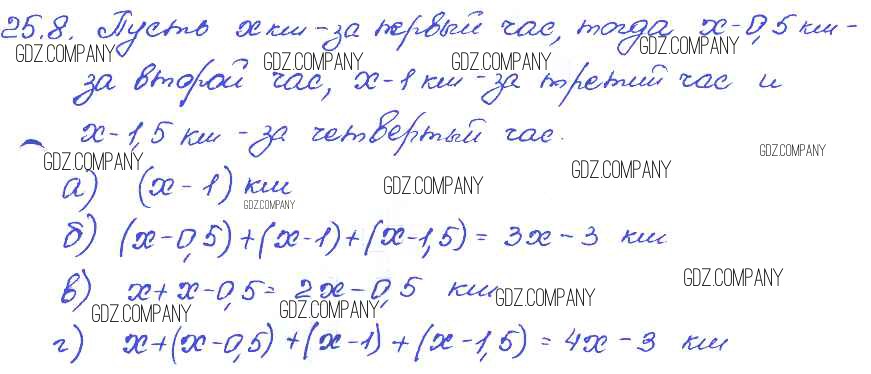 25.8. Пусть x км - за первый час, тогда x-0,5 км -
GDZ.COMPANY GDZ.COMPANY GDZ.COMPANY GDZ.COMPANY
за второй час, x-1 км - за третий час и
x-1,5 км - за четвертый час.
GDZ.COMPANY GDZ.COMPANY GDZ.COMPANY GDZ.COMPANY
а) (x-1) км
GDZ.COMPANY
б) (x-0,5)+(x-1)+(x-1,5) = 3x-3 км
GDZ.COMPANY
в) x+x-0,5= 2x-0,5 км
GDZ.COMPANY GDZ.COMPANY GDZ.COMPANY
г) x+(x-0,5)+(x-1)+(x-1,5) = 4x-3 км